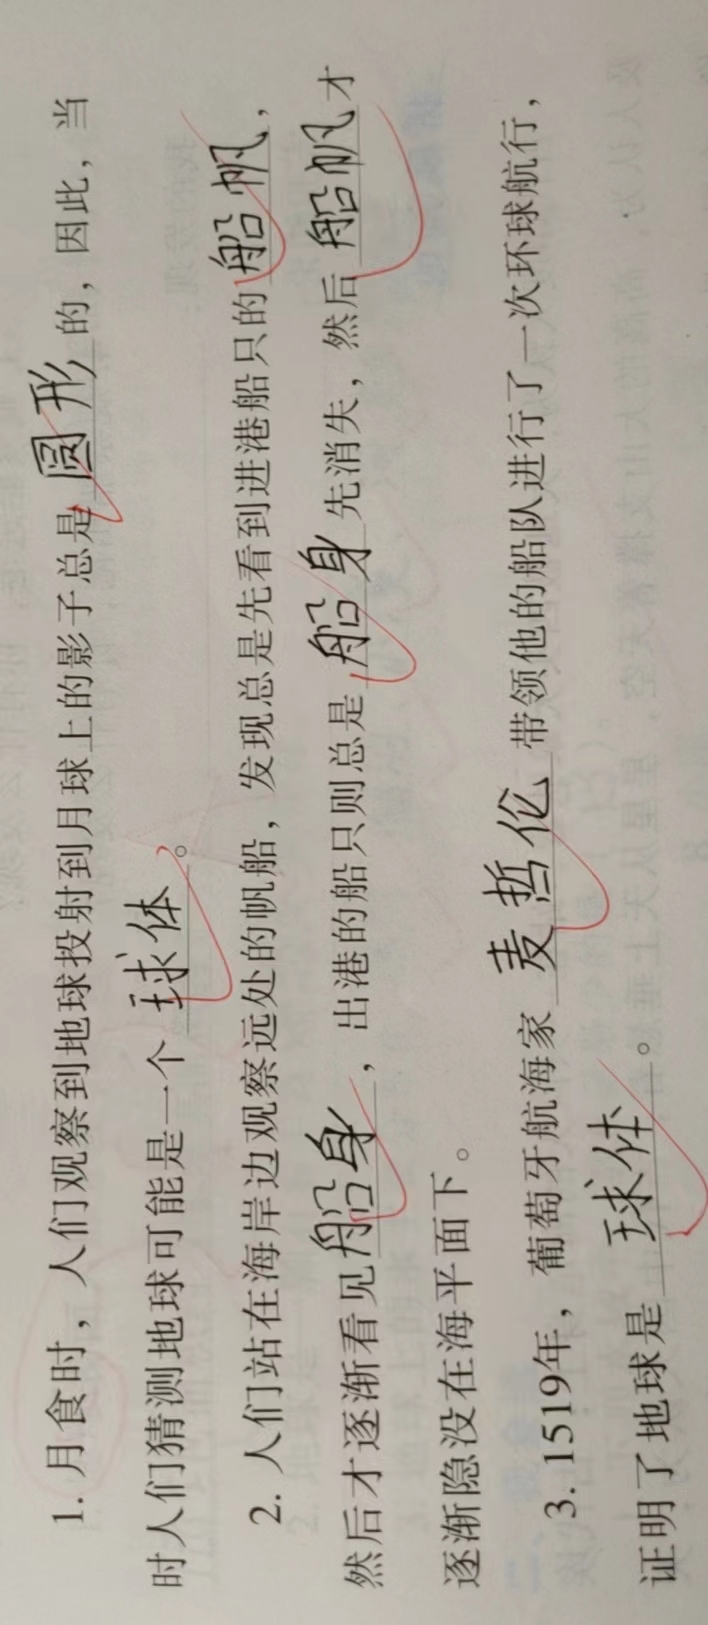 1. 月食时，人们观察到地球投射到月球上的影子总是圆形的，因此，当
时人们猜测地球可能是一个球体。
2. 人们站在海岸边观察远处的帆船，发现总是先看到进港船只的船帆，
然后才逐渐看见船身，出港的船只则总是船身先消失，然后船帆才
逐渐隐没在海平面下。
3. 1519年，葡萄牙航海家麦哲伦带领他的船队进行了一次环球航行，
证明了地球是球体。